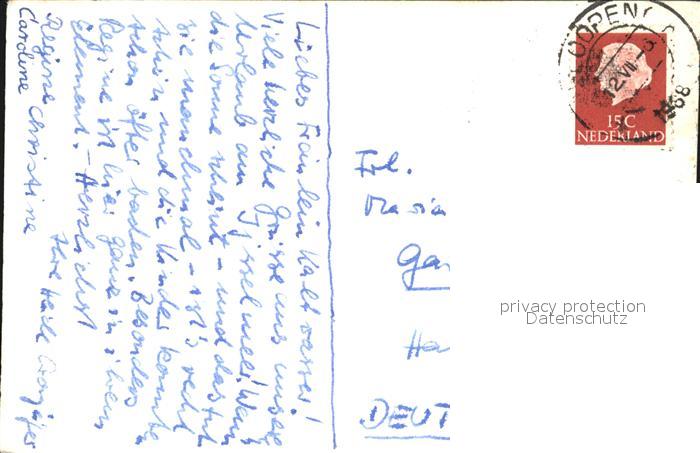 Liebes Fräulein Kaltwasser!
Viele herzliche Grüsse aus unserem
Urlaub am Ijsselmeer! Wenn
die Sonne scheint – und das tut
sie manchmal – ist's recht
schön und die Kinder konnten
schon öfter baden. Besonders
Regine ist hier ganz in ihrem
Element. – Herzlichst
Ihre Heide
Regine Christine
Caroline
Frl.
Maria
Ga
Ha
DEUT
OOPEN
12.VII
1968
15 C
NEDERLAND
privacy protection
Datenschutz